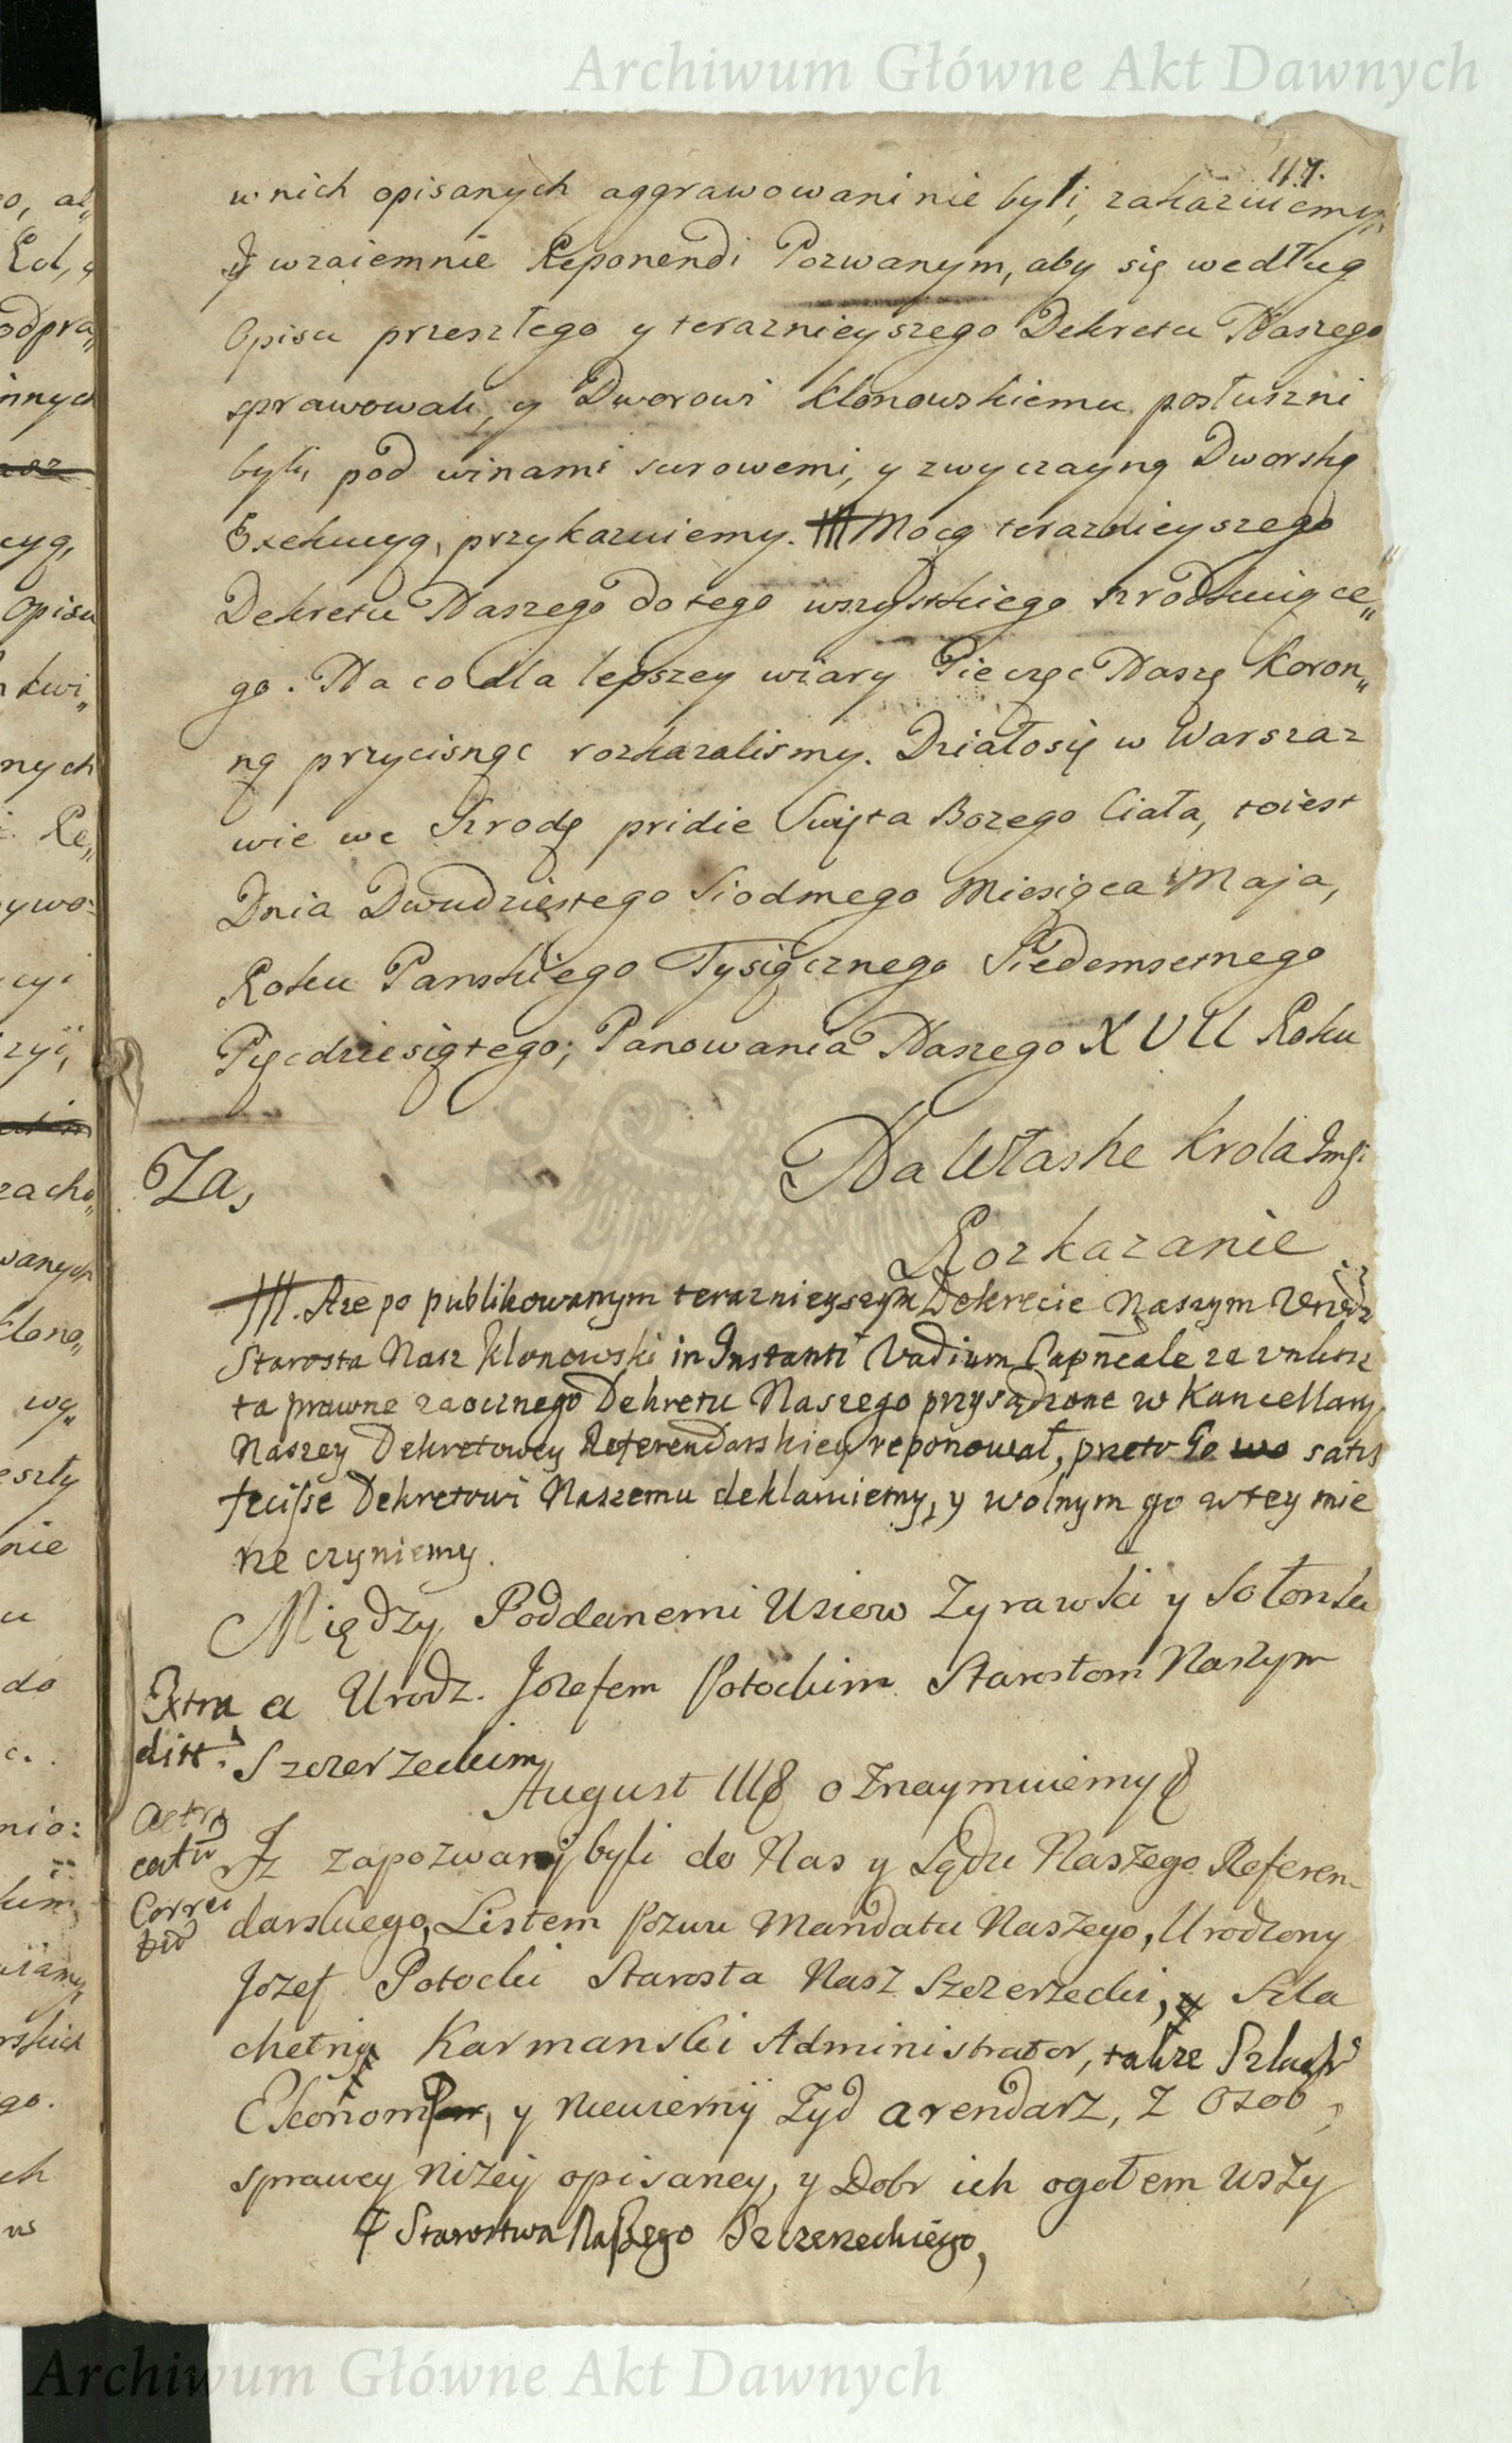 Archiwum Główne Akt Dawnych
117.
w nich opisanych aggrawowani nie byli, zakazuiemy,
Y wzaiemnie Reponendi Pozwanym, aby się według
Opisu przeszłego y teraznieyszego Dekretu Naszego
sprawowali, y Dworowi Klonowskiemu posłuszni
byli, pod winami surowemi, y zwyczayną Dworską
Exekucyą, przykazuiemy. III Mocą teraznieyszego
Dekretu Naszego do tego wszystkiego szrodkuiące„
go. Na co dla lepszey wiary Pieczęc Naszę Koron„
ną przycisnąc rozkazalismy. Działo się w Warsza
wie we Szrodę pridie Swięta Bozego Ciała, to iest
Dnia Dwudziestego Siodmego Miesiąca Maja,
Roku Panskiego Tysiącznego Siedemsetnego
Pięcdziesiątego; Panowania Naszego XVII Roku
Za,
Na Własne Krola Jmsi
Rozkazanie
III. A ze po publikowanym teraznieyszym Dekrecie Naszym Urodz
Starosta Nasz Klonowski in Instanti Vadium Capneale za
ta prawne zaocznego Dekretu Naszego przysądzone w Kancellary
Naszey Dekretowey Referendarskiey reponował, przeto Go wo satis
fecisse Dekretowi Naszemu deklaruiemy, y wolnym go w tey mie
rze czyniemy.
Między Poddanemi Wsiow Zyrawki y Sołonka
Extra a Urodz. Jozefem Potockim Starostom Naszym
ditt. Szczerzeckim
August III oznaymuiemy
Iz zapozwanj byli do Nas y Sądu Naszego Referen
Correc
darskiego, Listem Pozwu Mandatu Naszego, Urodzony
Jozef Potocki Starosta Nasz Szczerzecki, y Szla
chetny Karmanski Administrator, takze Szlach
Ekonom, y niewierny Zyd arendarz, z Osob,
sprawcy nizey opisaney, y Dobr ich ogołem wszy
Starostwa Naszego Szczerzeckiego,
Archiwum Główne Akt Dawnych